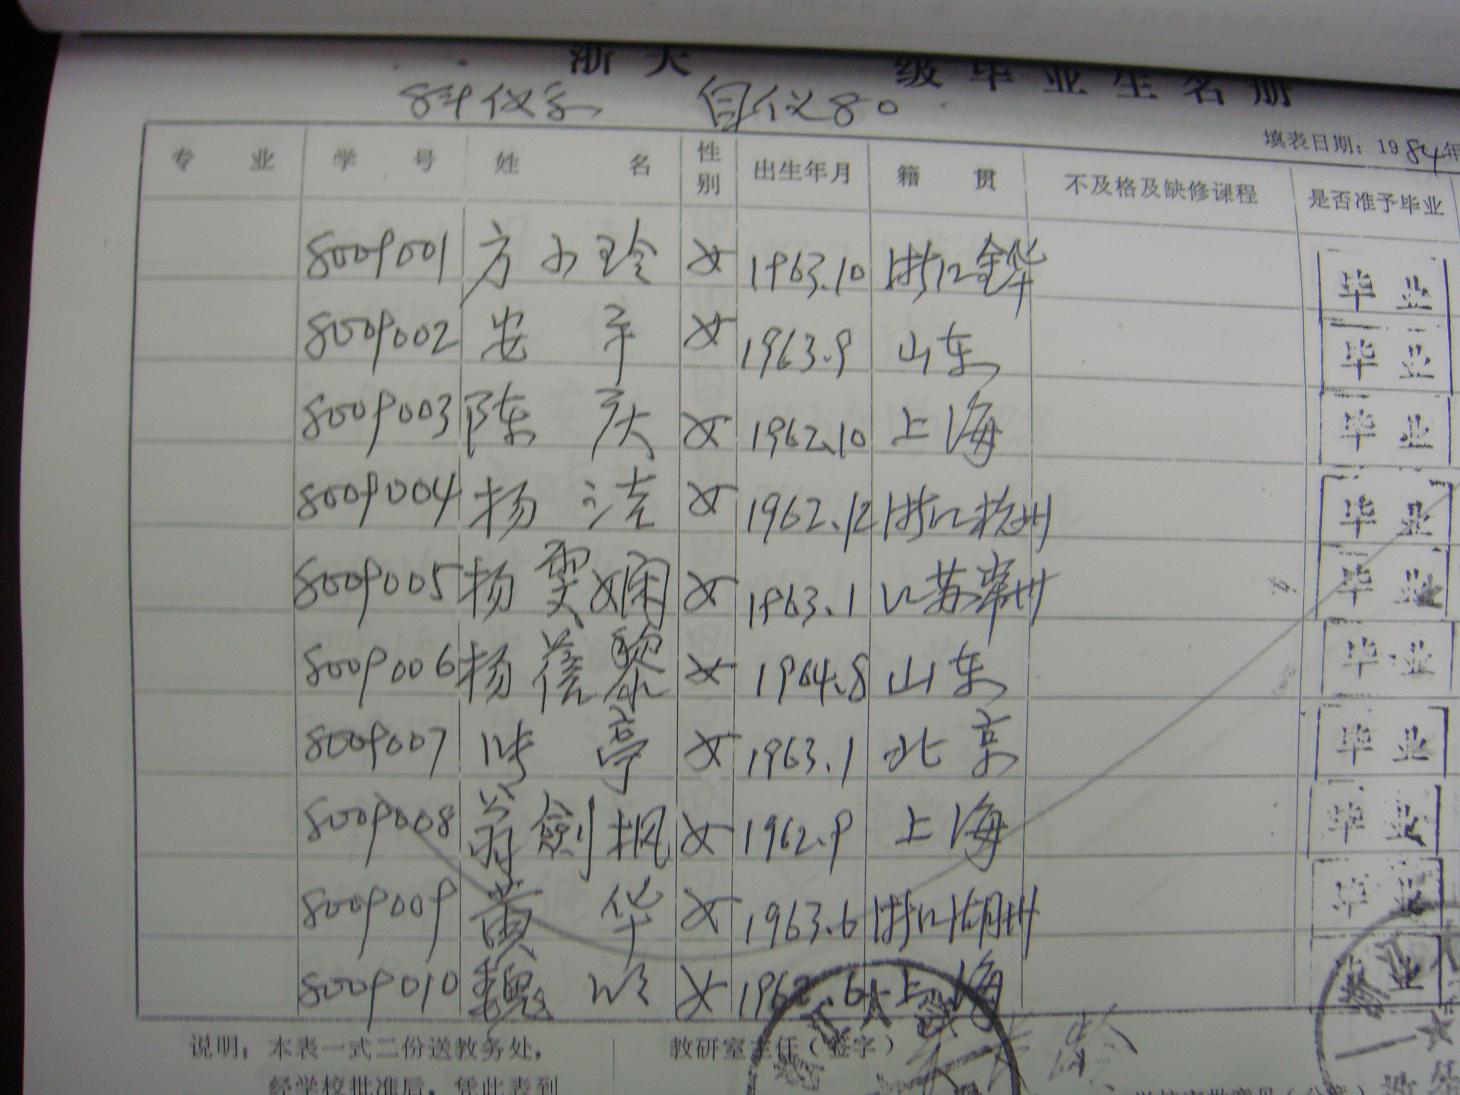 浙大 级毕业生名册
科仪系 自仪80
填表日期：1984年
专业 学号 姓名 性别 出生年月 籍贯 不及格及缺修课程 是否准予毕业
8009001 方小玲 女 1963.10 浙江金华 毕业
8009002 安平 女 1963.9 山东 毕业
8009003 陈庆 女 1962.10 上海 毕业
8009004 杨洁 女 1962.12 浙江杭州 毕业
8009005 杨雯娴 女 1963.1 江苏常州 毕业
8009006 杨蓓黎 女 1964.8 山东 毕业
8009007 亭 女 1963.1 北京 毕业
8009008 翁剑枫 女 1962.9 上海 毕业
8009009 黄华 女 1963.6 浙江湖州 毕业
8009010 魏 女 1962.6 上海 毕业
说明：本表一式二份送教务处， 教研室主任（签字）
经学校批准后，凭此表到